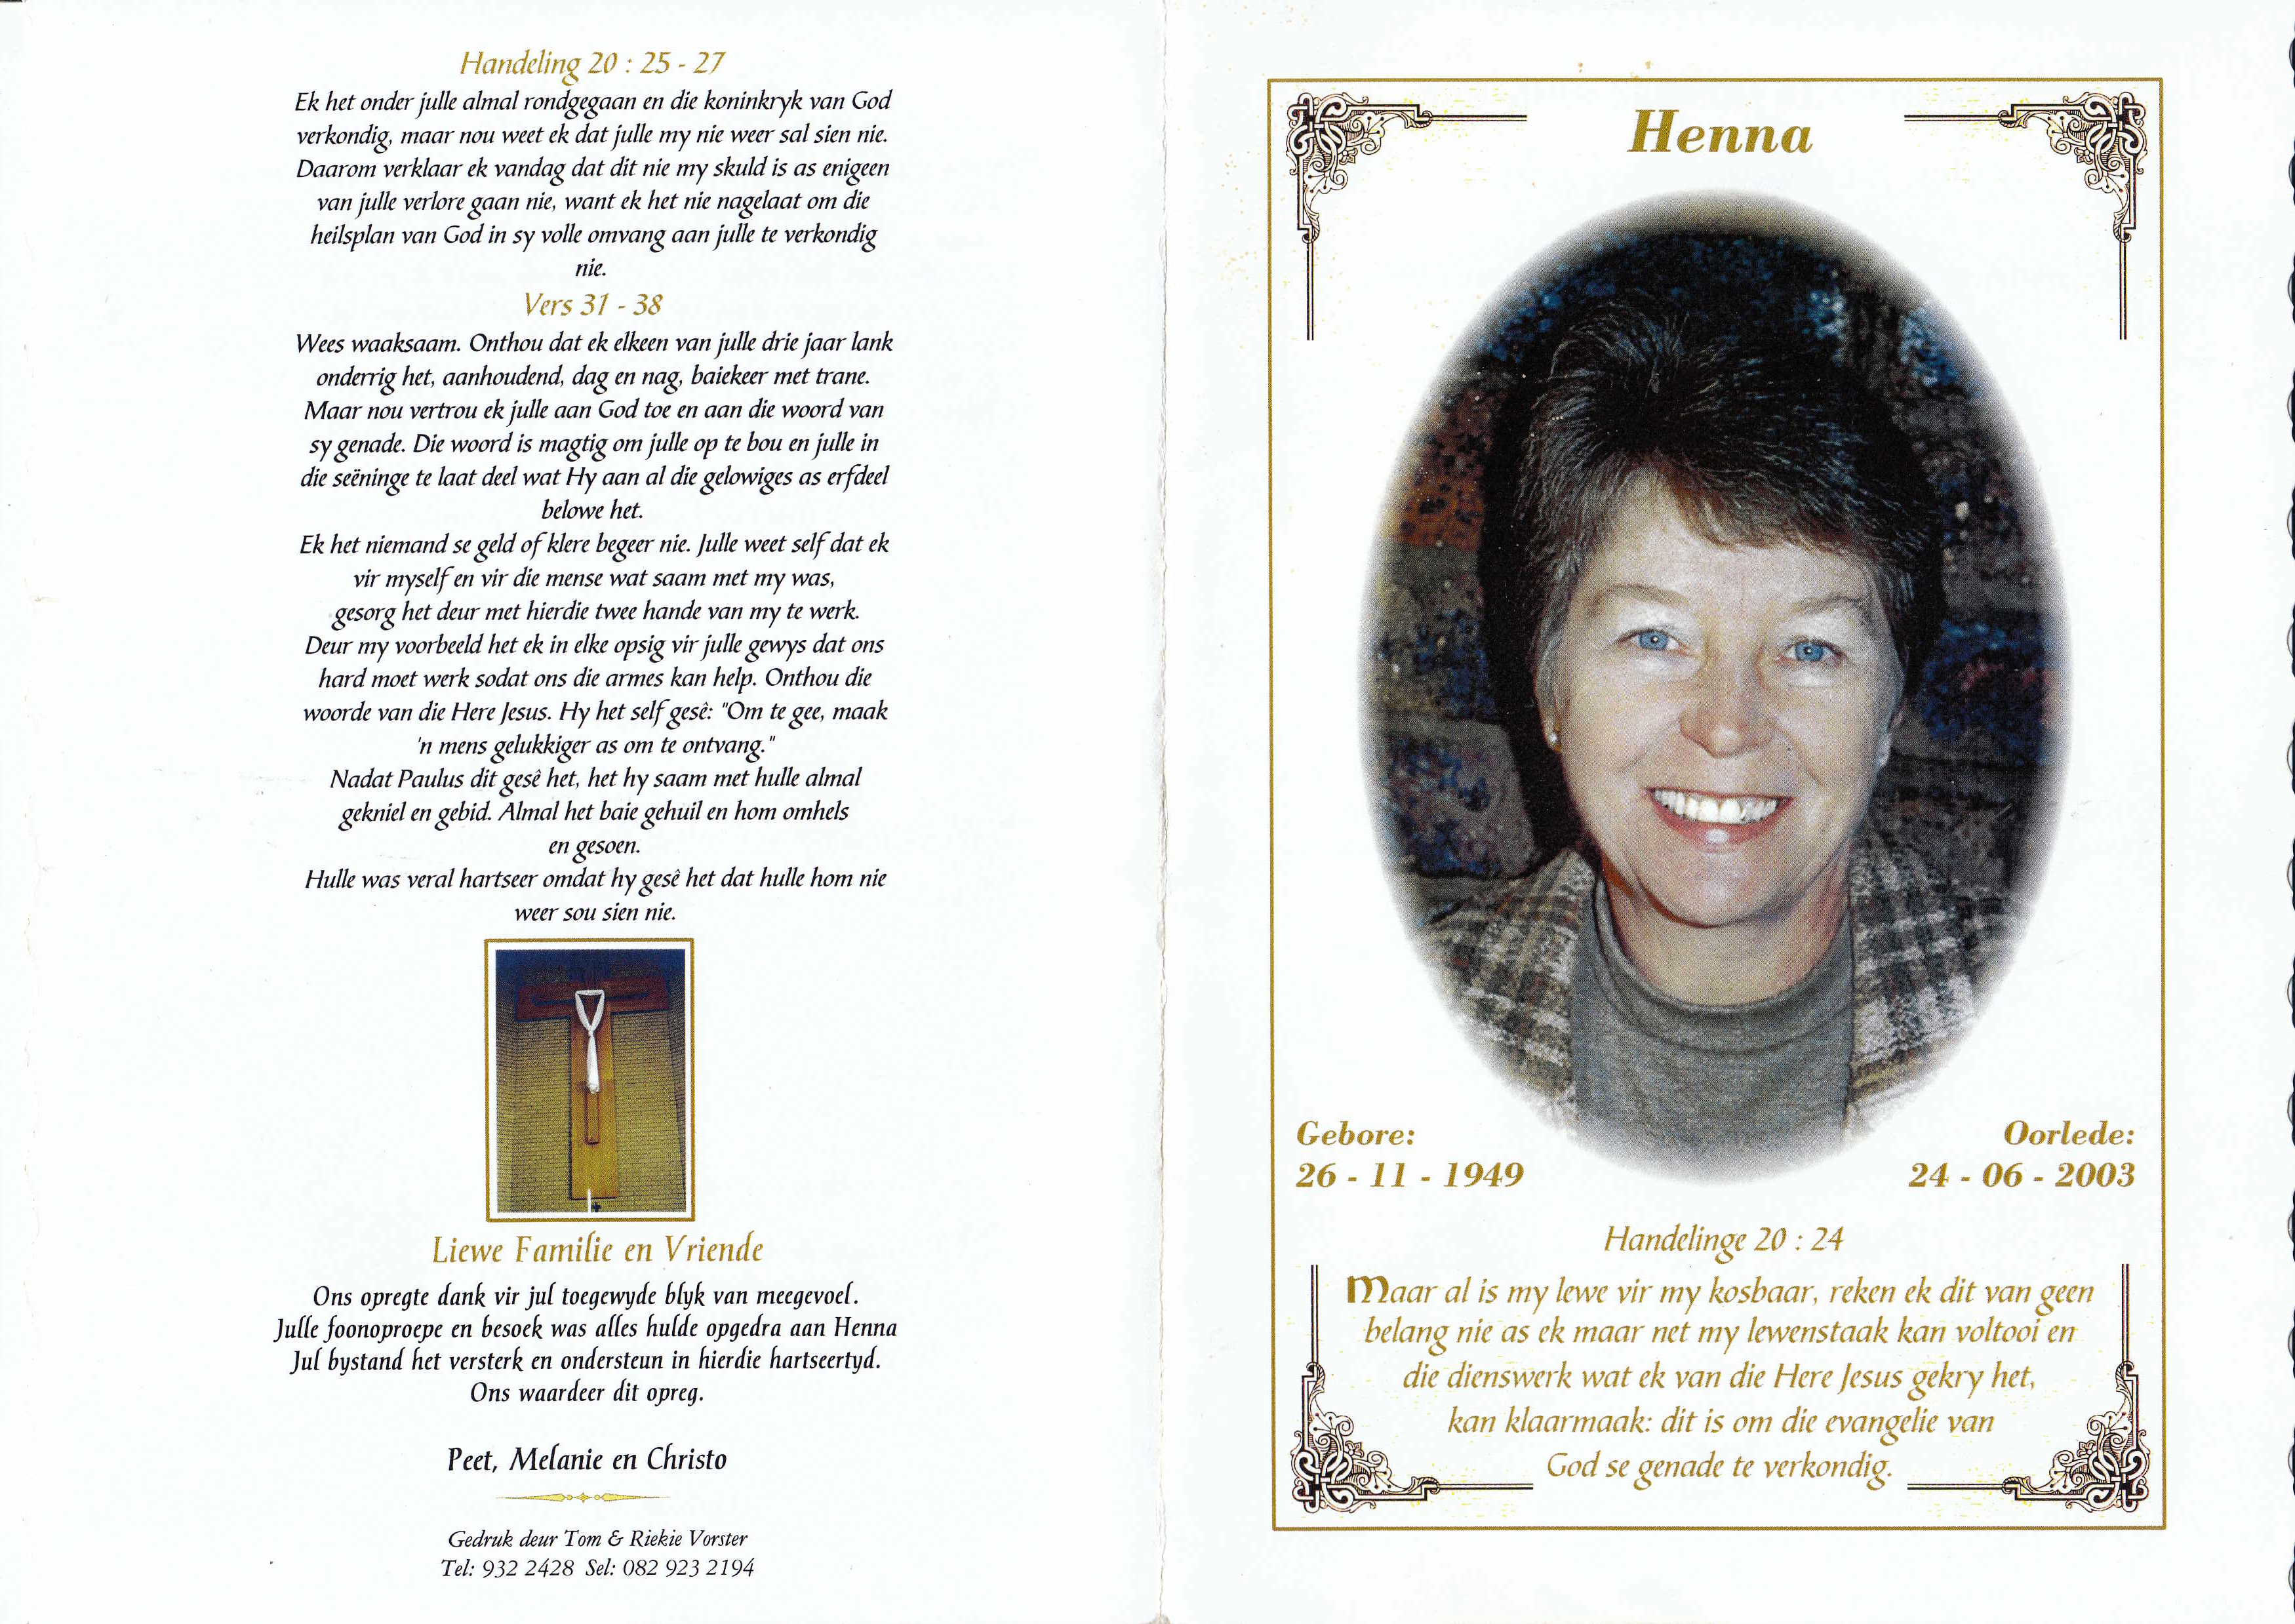 Handeling 20 : 25 - 27
Ek het onder julle almal rondgegaan en die koninkryk van God
verkondig, maar nou weet ek dat julle my nie weer sal sien nie.
Daarom verklaar ek vandag dat dit nie my skuld is as enigeen
van julle verlore gaan nie, want ek het nie nagelaat om die
heilsplan van God in sy volle omvang aan julle te verkondig
nie.
Vers 31 - 38
Wees waaksaam. Onthou dat ek elkeen van julle drie jaar lank
onderrig het, aanhoudend, dag en nag, baiekeer met trane.
Maar nou vertrou ek julle aan God toe en aan die woord van
sy genade. Die woord is magtig om julle op te bou en julle in
die seëninge te laat deel wat Hy aan al die gelowiges as erfdeel
belowe het.
Ek het niemand se geld of klere begeer nie. Julle weet self dat ek
vir myself en vir die mense wat saam met my was,
gesorg het deur met hierdie twee hande van my te werk.
Deur my voorbeeld het ek in elke opsig vir julle gewys dat ons
hard moet werk sodat ons die armes kan help. Onthou die
woorde van die Here Jesus. Hy het self gesê: "Om te gee, maak
'n mens gelukkiger as om te ontvang."
Nadat Paulus dit gesê het, het hy saam met hulle almal
gekniel en gebid. Almal het baie gehuil en hom omhels
en gesoen.
Hulle was veral hartseer omdat hy gesê het dat hulle hom nie
weer sou sien nie.
Liewe Familie en Vriende
Ons opregte dank vir jul toegewyde blyk van meegevoel.
Julle foonoproepe en besoek was alles hulde opgedra aan Henna
Jul bystand het versterk en ondersteun in hierdie hartseertyd.
Ons waardeer dit opreg.
Peet, Melanie en Christo
Gedruk deur Tom & Riekie Vorster
Tel: 932 2428 Sel: 082 923 2194
Henna
Gebore:
26 - 11 - 1949
Oorlede:
24 - 06 - 2003
Handelinge 20 : 24
Maar al is my lewe vir my kosbaar, reken ek dit van geen
belang nie as ek maar net my lewenstaak kan voltooi en
die dienswerk wat ek van die Here Jesus gekry het,
kan klaarmaak: dit is om die evangelie van
God se genade te verkondig.